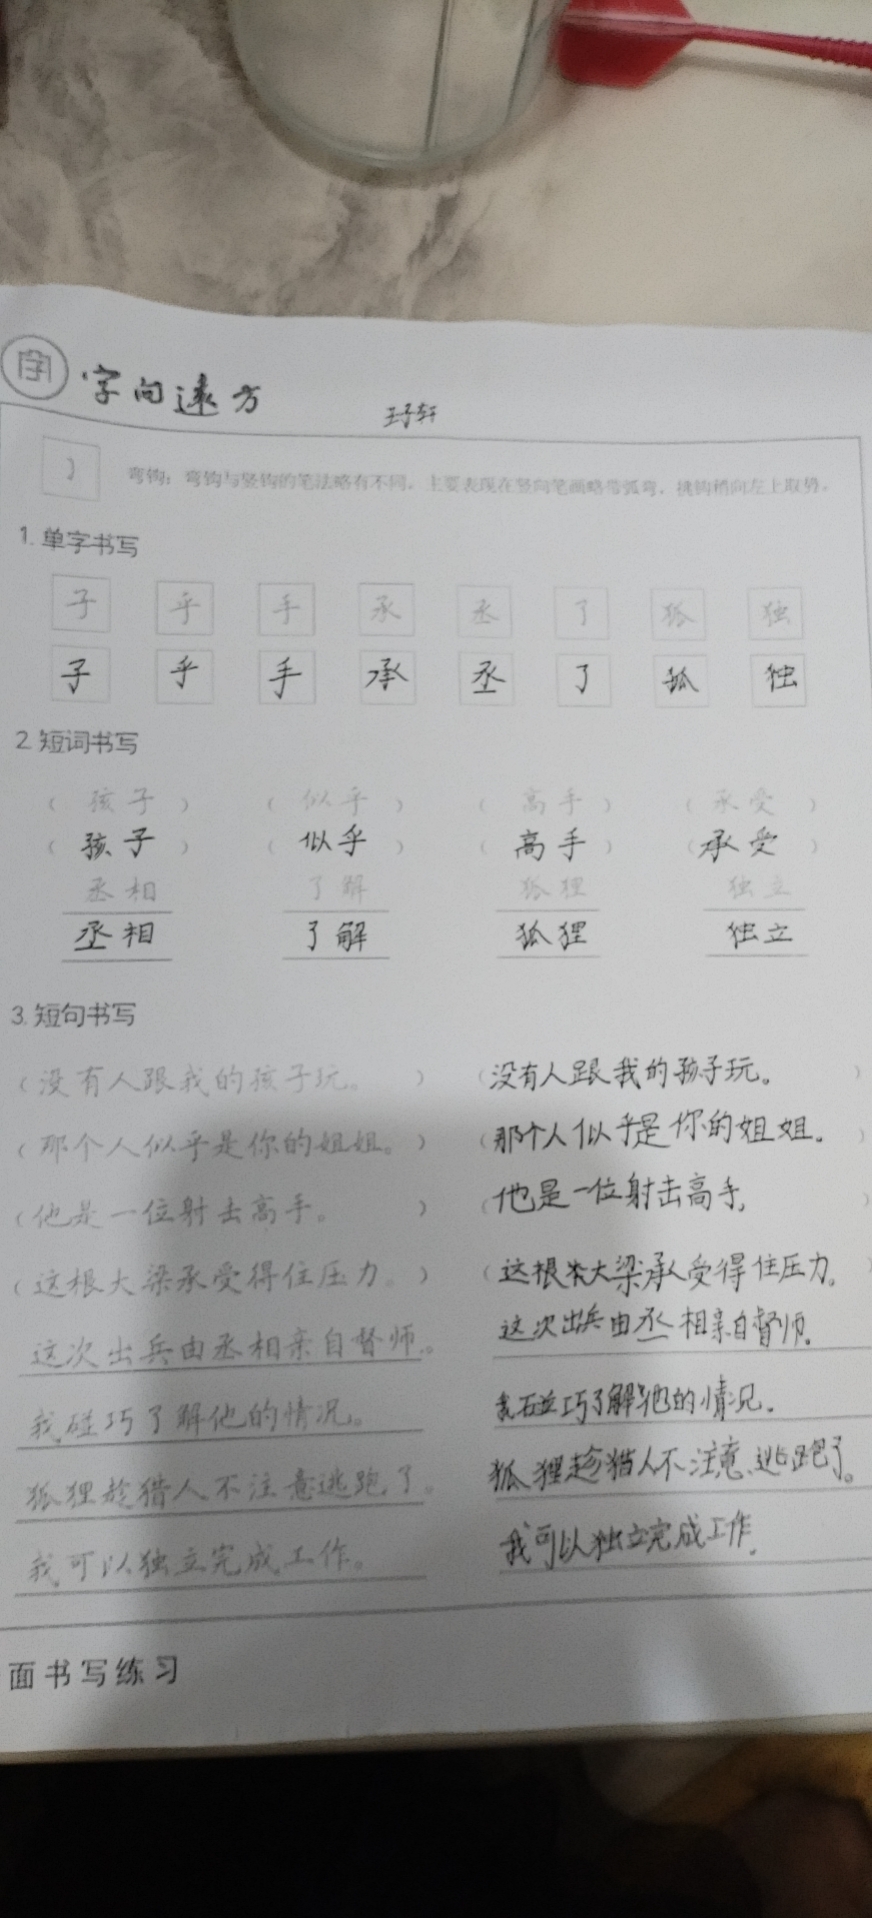 字 字向远方
王子轩
弯钩：弯钩与竖钩的笔法略有不同。主要表现在竖向笔画略带弧弯，挑钩稍向左上取势。
1. 单字书写
子 乎 手 承 丞 了 狐 独
子 乎 手 承 丞 了 狐 独
2. 短词书写
（孩子）（似乎）（高手）（承受）
（孩子）（似乎）（高手）（承受）
丞相 了解 狐狸 独立
丞相 了解 狐狸 独立
3. 短句书写
（没有人跟我的孩子玩。）（没有人跟我的孩子玩。）
（那个人似乎是你的姐姐。）（那个人似乎是你的姐姐。）
（他是一位射击高手。）（他是一位射击高手。）
（这根大梁承受得住压力。）（这根大梁承受得住压力。）
这次出兵由丞相亲自督师。 这次出兵由丞相亲自督师.
我碰巧了解他的情况。 我碰巧了解他的情况.
狐狸趁猎人不注意逃跑了。 狐狸趁猎人不注意逃跑了。
我可以独立完成工作。 我可以独立完成工作.
面书写练习